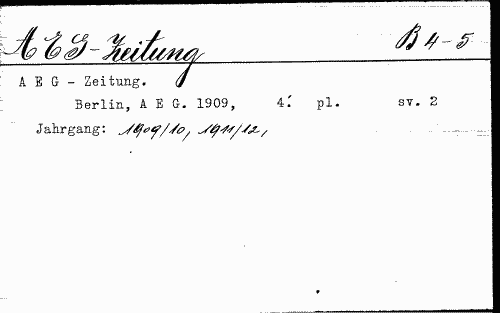 AEG-Zeitung B 4-5
A E G - Zeitung.
Berlin, A E G. 1909, 4: pl. sv. 2
Jahrgang: 1909/10, 1911/12,